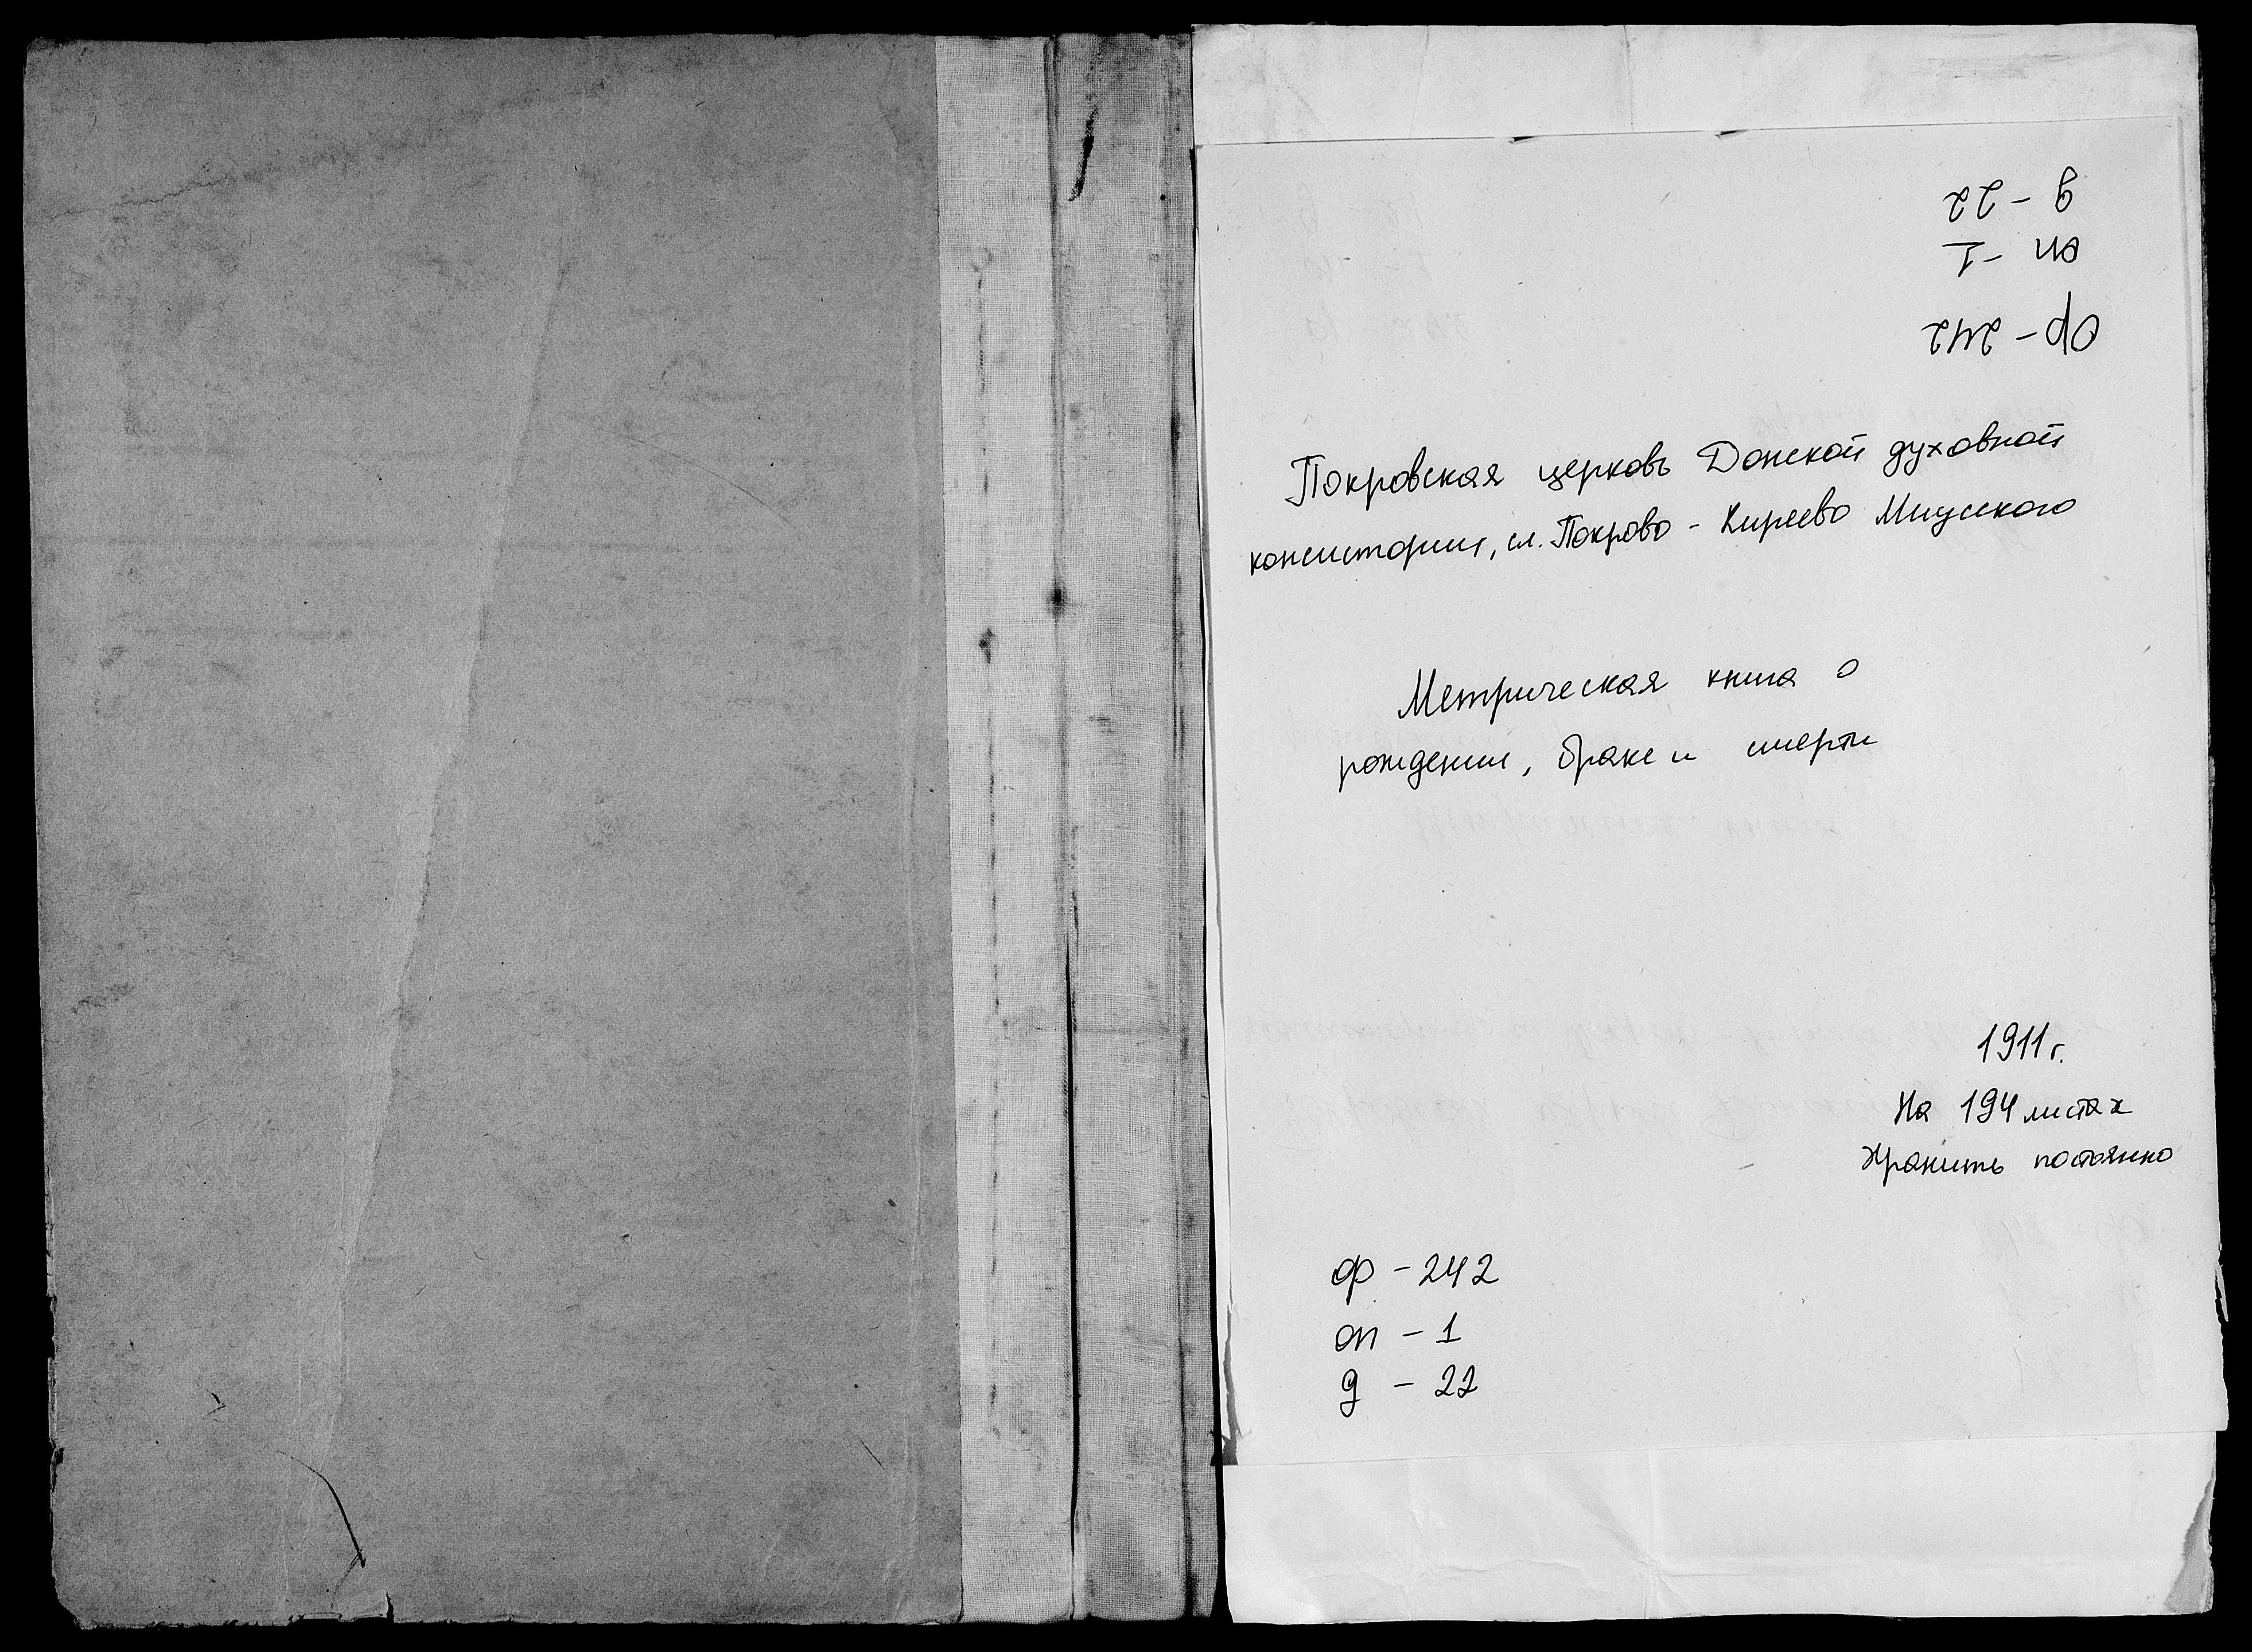 д - 22
оп - 1
Ф - 242
Покровская церковь Донской духовной
консистории, сл. Покрово - Киреево Миусского
Метрическая книга о
рождении, браке и смерти
1911 г.
На 194 листах
Хранить постоянно
ф - 242
оп - 1
д - 22